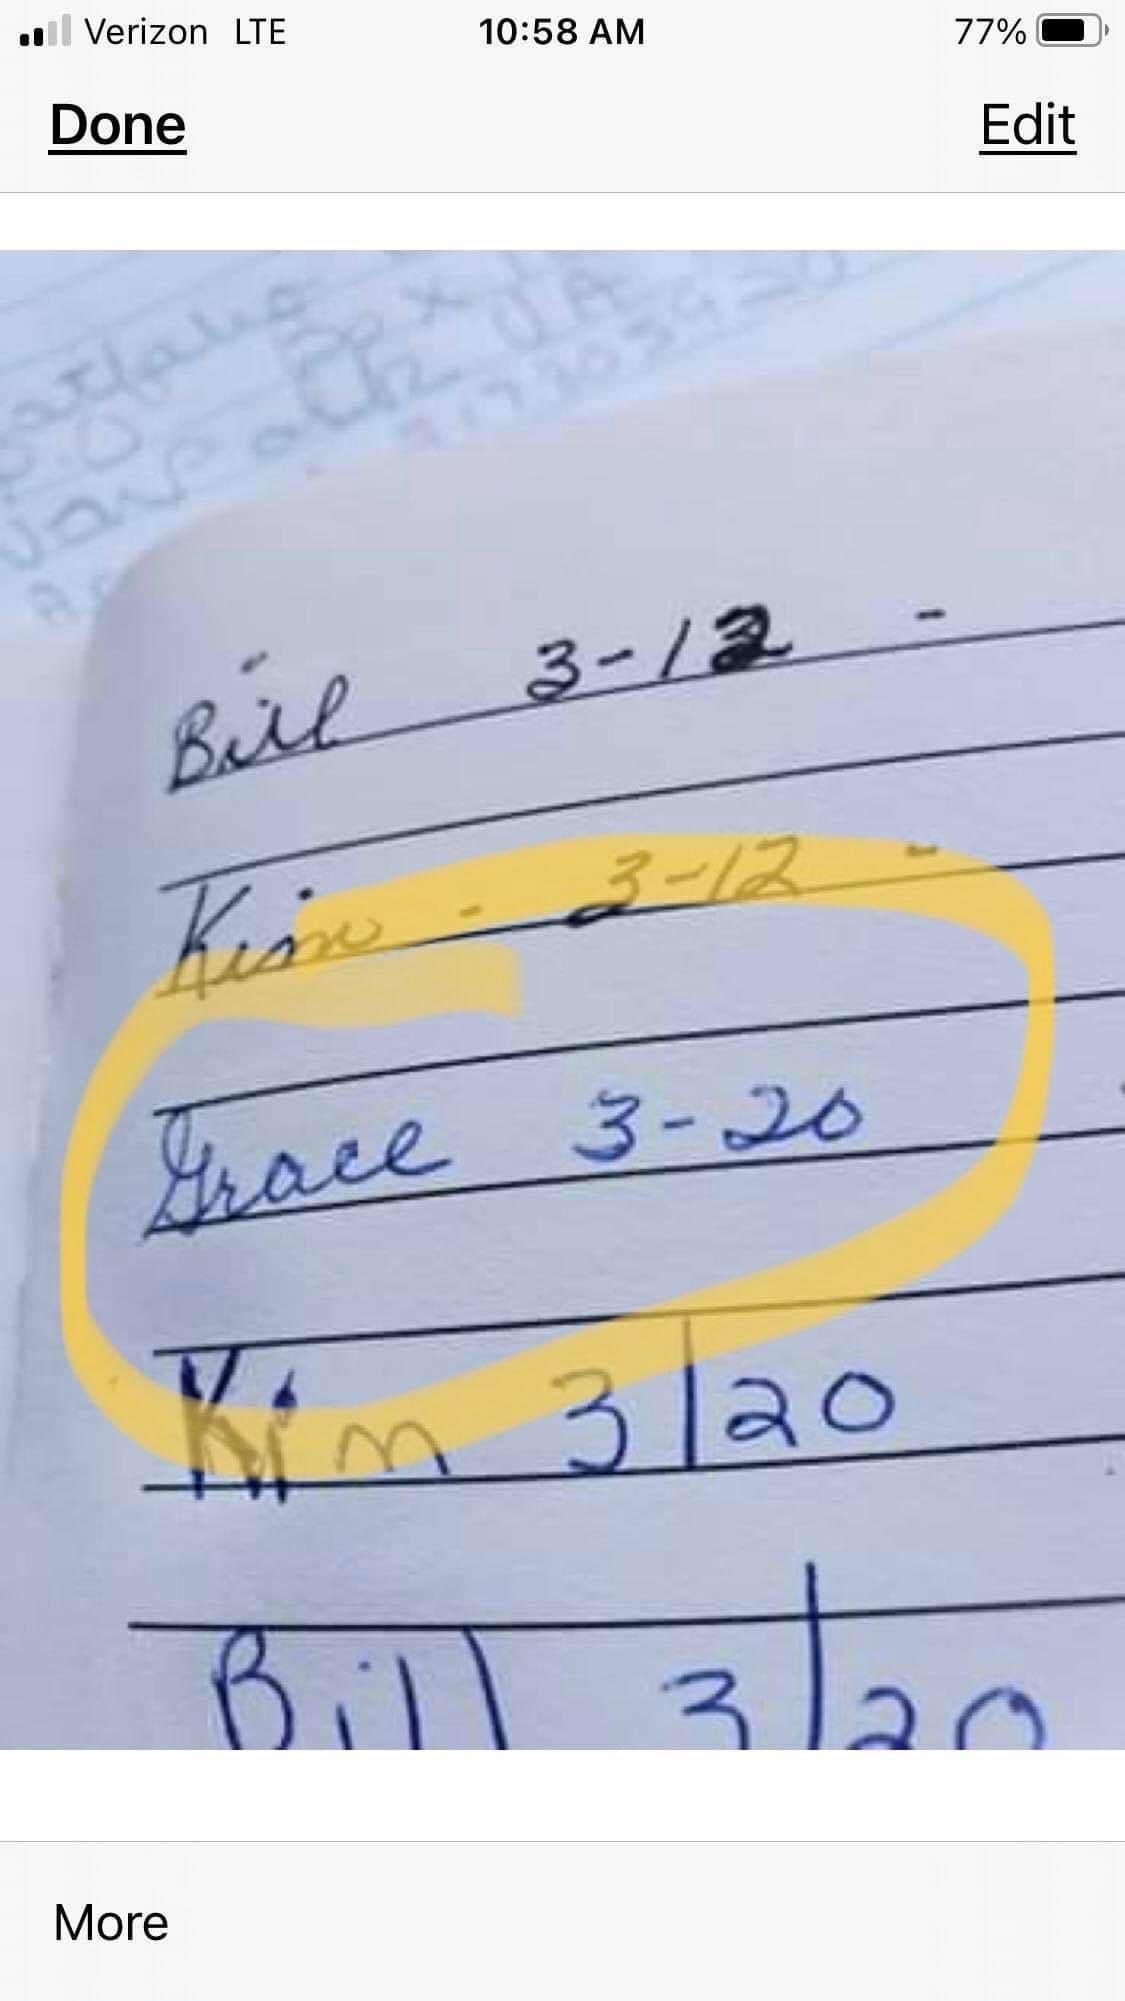 Verizon LTE 10:58 AM 77%
Done Edit
Bill 3-12 -
Kim - 3-12 -
Grace 3-20
Kim 3/20
Bill 3/20
More